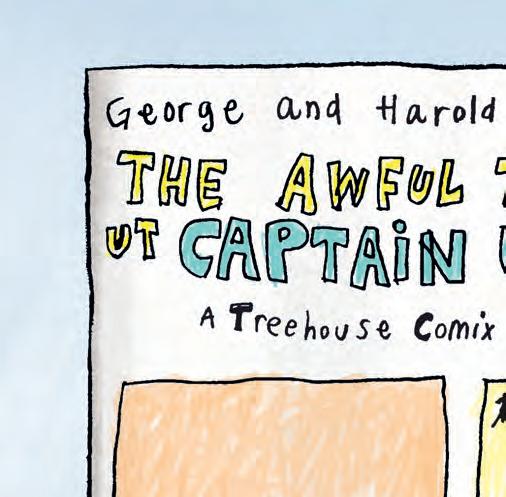 George and Harold
THE AWFUL
UT CAPTAiN
A Treehouse Comix